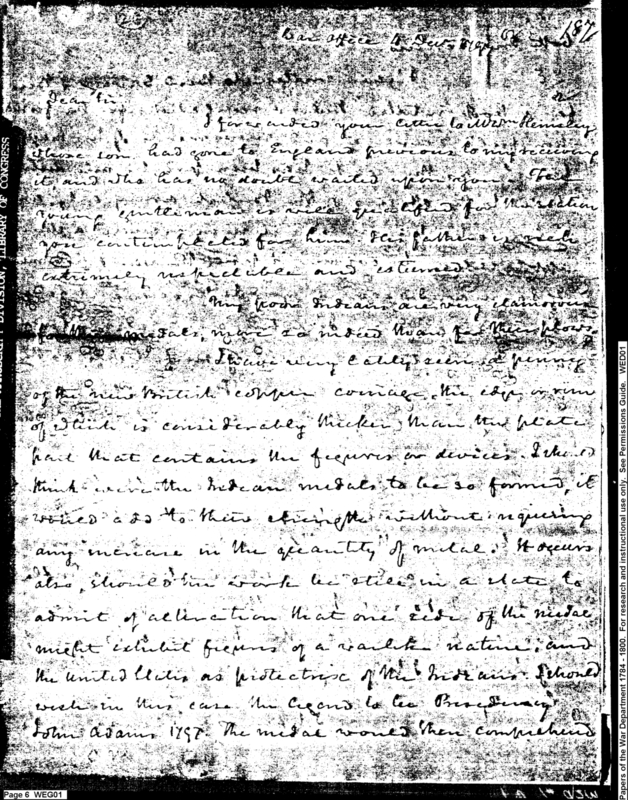 187
War Office 4 Decr. 1797
Dear Sir,
I forwarded your letter to Mr Wm Hemsley
whose son had gone to England previous to my receiving
it and who has no doubt waited upon you. The
young gentleman is well qualified for the station
you contemplated for him. His father is
extremely respectable and esteemed
My poor Indians are very clamorous
for their medals, more so indeed than for their plows.
I have very lately seen a penny
of the new British copper coinage, the edge or rim
of which is considerably thicker than the plate
part that contains the figures or devices. I should
think were the Indian medals to be so formed, it
would add to their strength without requiring
any increase in the quantity of metal. It occurs
also, should the work be still in a state to
admit of alteration that one side of the medal
might exhibit figures of a warlike nature, and
the United States as protectrix of the Indians. I should
wish in this case the legend to be Presidency
John Adams 1797. The medal would then comprehend
MANUSCRIPT DIVISION, LIBRARY OF CONGRESS
Papers of the War Department 1784 - 1800. For research and instructional use only. See Permissions Guide. WED01
Page 6 WEG01